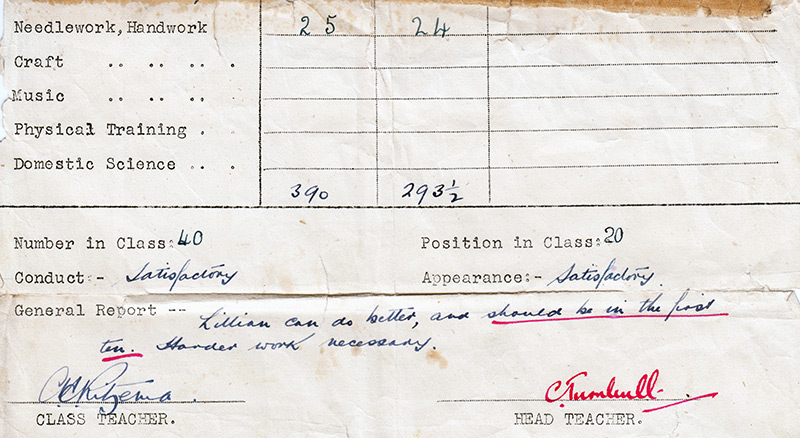 Needlework, Handwork 25 24
Craft .. .. .. .
Music .. .. ..
Physical Training .
Domestic Science .. .
390 293½
Number in Class: 40 Position in Class: 20
Conduct:- Satisfactory Appearance:- Satisfactory
General Report -- Lillian can do better, and should be in the first
ten. Harder work necessary.
C. Turnbull
CLASS TEACHER. HEAD TEACHER.